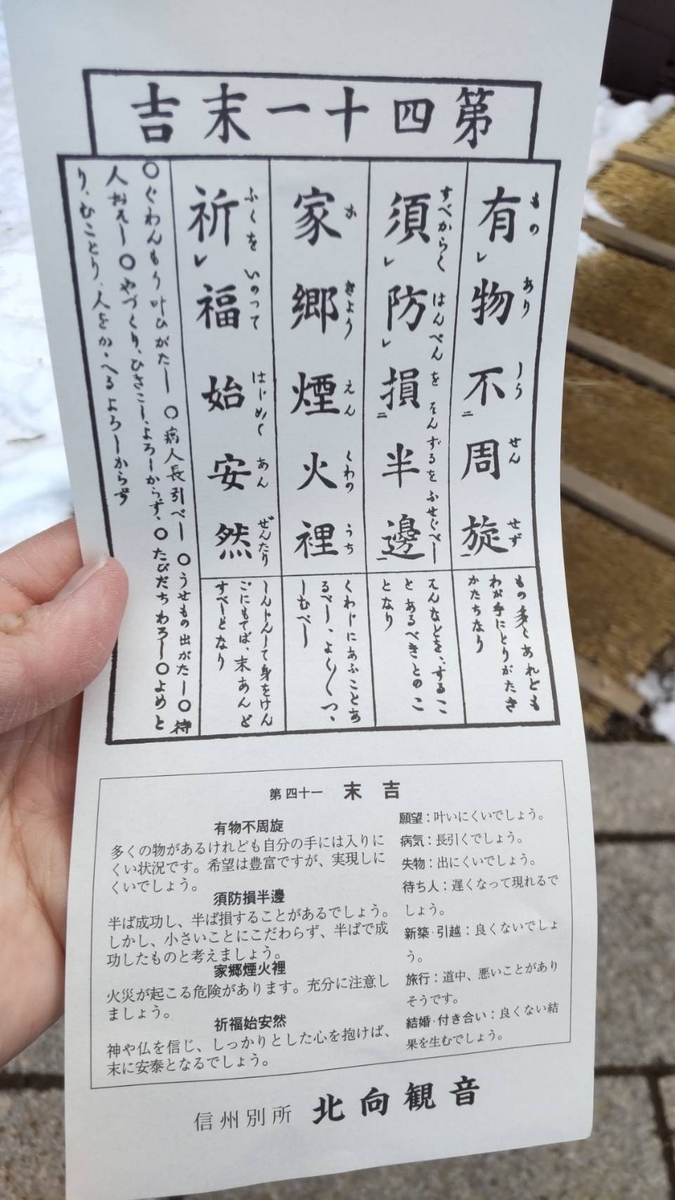 第四十一末吉
有物不周旋
ものありしうせんせず
もの多くあれども
わが手にとりがたき
かたちなり
須防損半邊
すべからくはんぺんをそんずるをふせぐべし
そんなどを、するこ
とあるべきとのこ
となり
家郷煙火裡
かきょうえんくわのうち
くわじにあふことあ
るべし、よく〳〵つゝ
しむべし
祈福始安然
ふくをいのつてはじめてあんぜんたり
しんじんして身をけん
ごにもてば、末あんど
すべしとなり
〇ぐわんもう叶ひがたし 〇病人長引べし 〇うせもの出がたし〇待
人おそし〇やづくり、ひきこし、よろしからず、〇たびだちわろし〇よめと
り、むことり、人をかゝへるよろしからず
第四十一 末吉
有物不周旋
多くの物があるけれども自分の手には入りに
くい状況です。希望は豊富ですが、実現しに
くいでしょう。
須防損半邊
半ば成功し、半ば損することがあるでしょう。
しかし、小さいことにこだわらず、半ばで成
功したものと考えましょう。
家郷煙火裡
火災が起こる危険があります。充分に注意し
ましょう。
祈福始安然
神や仏を信じ、しっかりとした心を抱けば、
末に安泰となるでしょう。
願望：叶いにくいでしょう。
病気：長引くでしょう。
失物：出にくいでしょう。
待ち人：遅くなって現れるで
しょう。
新築・引越：良くないでしょ
う。
旅行：道中、悪いことがあり
そうです。
結婚・付き合い：良くない結
果を生むでしょう。
信州別所 北向観音